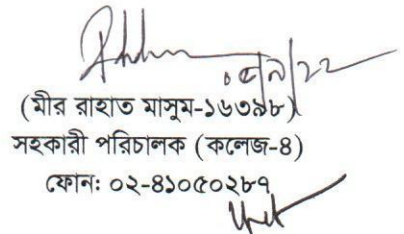 (মীর রাহাত মাসুম-১৬৩৯৮)
সহকারী পরিচালক (কলেজ-৪)
ফোন: ০২-৪১০৫০২৮৭